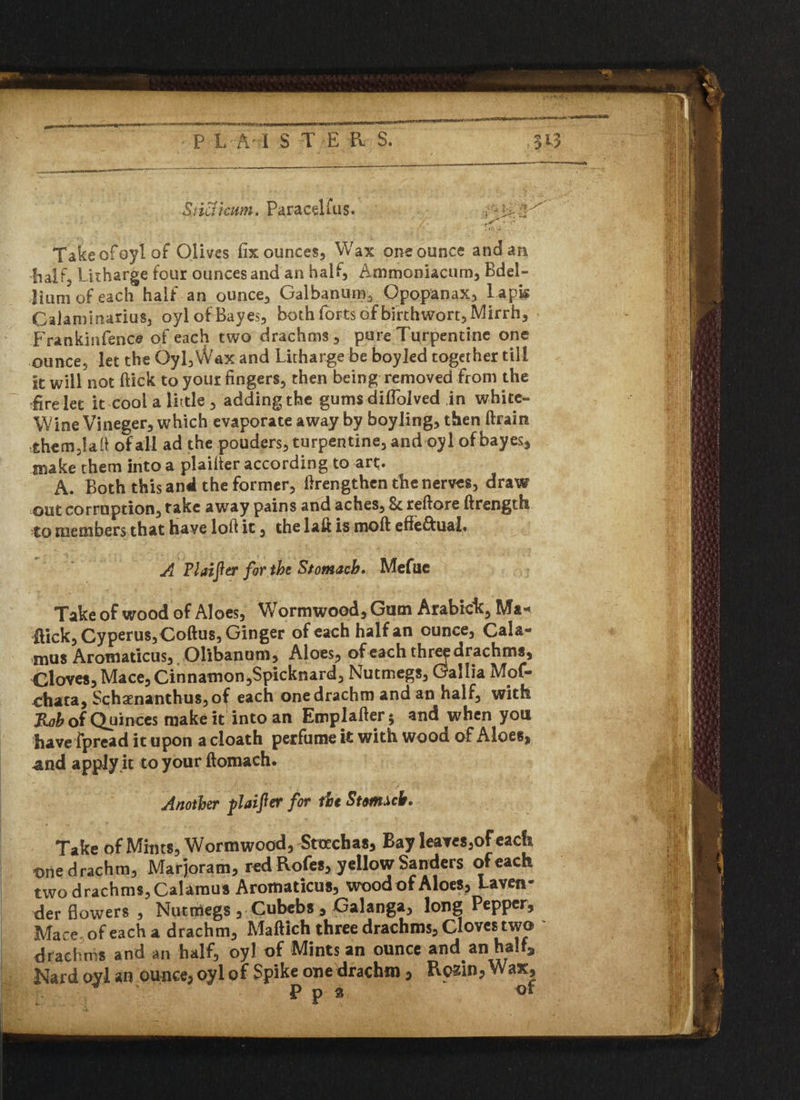 PLAISTERS. 313
Sticticum. Paracelſus.
Take of oyl of Olives ſix ounces, Wax one ounce and an
half, Litharge four ounces and an half, Ammoniacum, Bdel-
lium of each half an ounce, Galbanum, Opopanax, Lapis
Calaminarius, oyl of Bayes, both ſorts of birthwort, Mirrh,
Frankinſence of each two drachms, pure Turpentine one
ounce, let the Oyl, Wax and Litharge be boyled together till
it will not ſtick to your fingers, then being removed from the
fire let it cool a little, adding the gums diſſolved in white-
Wine Vineger, which evaporate away by boyling, then ſtrain
them, laſt of all ad the pouders, turpentine, and oyl of bayes,
make them into a plaiſter according to art.
A. Both this and the former, ſtrengthen the nerves, draw
out corruption, take away pains and aches, & reſtore ſtrength
to members that have loſt it, the laſt is moſt effectual.
A Plaiſter for the Stomach. Meſue
Take of wood of Aloes, Wormwood, Gum Arabick, Ma-
ſtick, Cyperus, Coſtus, Ginger of each half an ounce, Cala-
mus Aromaticus, Olibanum, Aloes, of each three drachms,
Cloves, Mace, Cinnamon, Spicknard, Nutmegs, Gallia Moſ-
chata, Schænanthus, of each one drachm and an half, with
Rob of Quinces make it into an Emplaſter; and when you
have ſpread it upon a cloath perfume it with wood of Aloes,
and apply it to your ſtomach.
Another plaiſter for the Stomach.
Take of Mints, Wormwood, Stœchas, Bay leaves, of each
one drachm, Marjoram, red Roſes, yellow Sanders of each
two drachms, Calamus Aromaticus, wood of Aloes, Laven-
der flowers, Nutmegs, Cubebs, Galanga, long Pepper,
Mace of each a drachm, Maſtich three drachms, Cloves two
drachms and an half, oyl of Mints an ounce and an half,
Nard oyl an ounce, oyl of Spike one drachm, Rozin, Wax,
P p 2 of